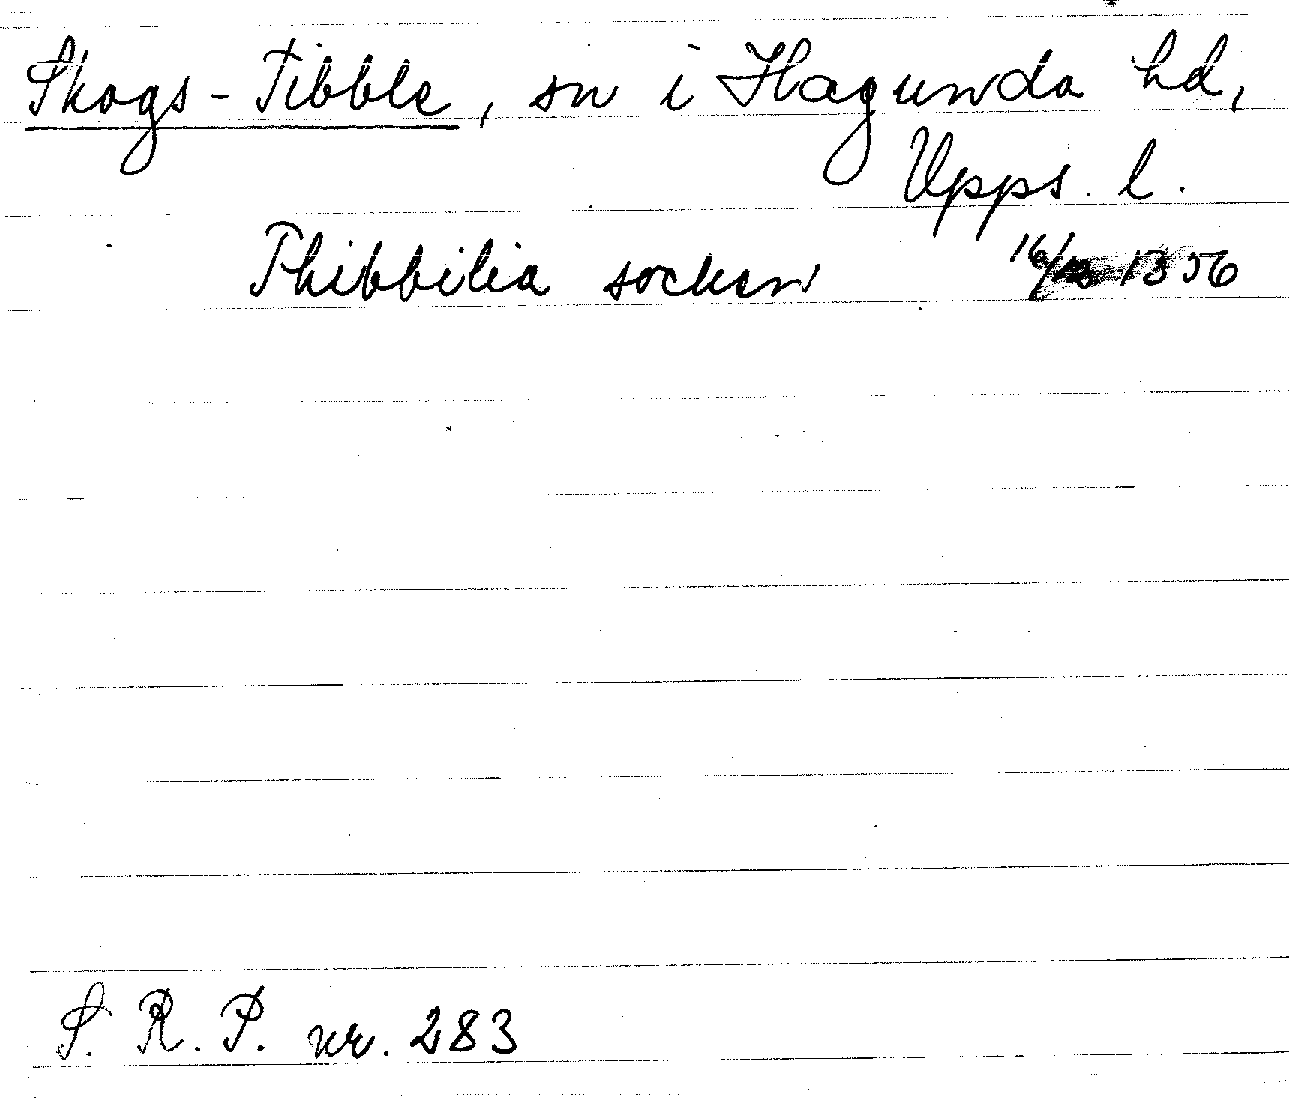 Skogs-Tibble, sn i Hagunda hd,
Upps. l.
Thibbilia socken 16/12 1356
S. R. P. nr. 283